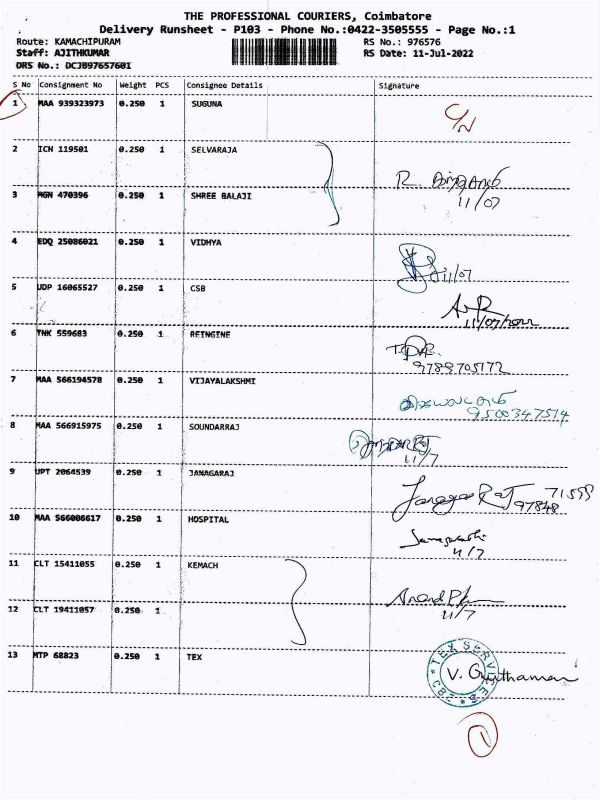 THE PROFESSIONAL COURIERS, Coimbatore
Delivery Runsheet - P103 - Phone No.:0422-3505555 - Page No.:1
Route: KAMACHIPURAM RS No.: 976576
Staff: AJITHKUMAR RS Date: 11-Jul-2022
DRS No.: DCJ897657601
S No Consignment No Weight PCS Consignee Details Signature
1 MAA 939323973 0.250 1 SUGUNA C/N
2 ICH 119501 0.250 1 SELVARAJA
R.
3 MGN 470396 0.250 1 SHREE BALAJI 11/07
4 EDQ 25086021 0.250 1 VIDHYA
11/07
5 UDP 16065527 0.250 1 CSB
11/07/2022
6 TNK 559683 0.250 1 REINGINE
9789705172
7 MAA 566194578 0.250 1 VIJAYALAKSHMI
9500347514
8 MAA 566915975 0.250 1 SOUNDARRAJ
11/7
9 UPT 2064539 0.250 1 JANAGARAJ
Janagaraj 71599
97848
10 MAA 566006617 0.250 1 HOSPITAL
11/7
11 CLT 15411055 0.250 1 KEMACH
Anand
12 CLT 19411057 0.250 1 11/7
13 MTP 68823 0.250 1 TEX
TEX SERVICES CBE
V. Gruthaman
1